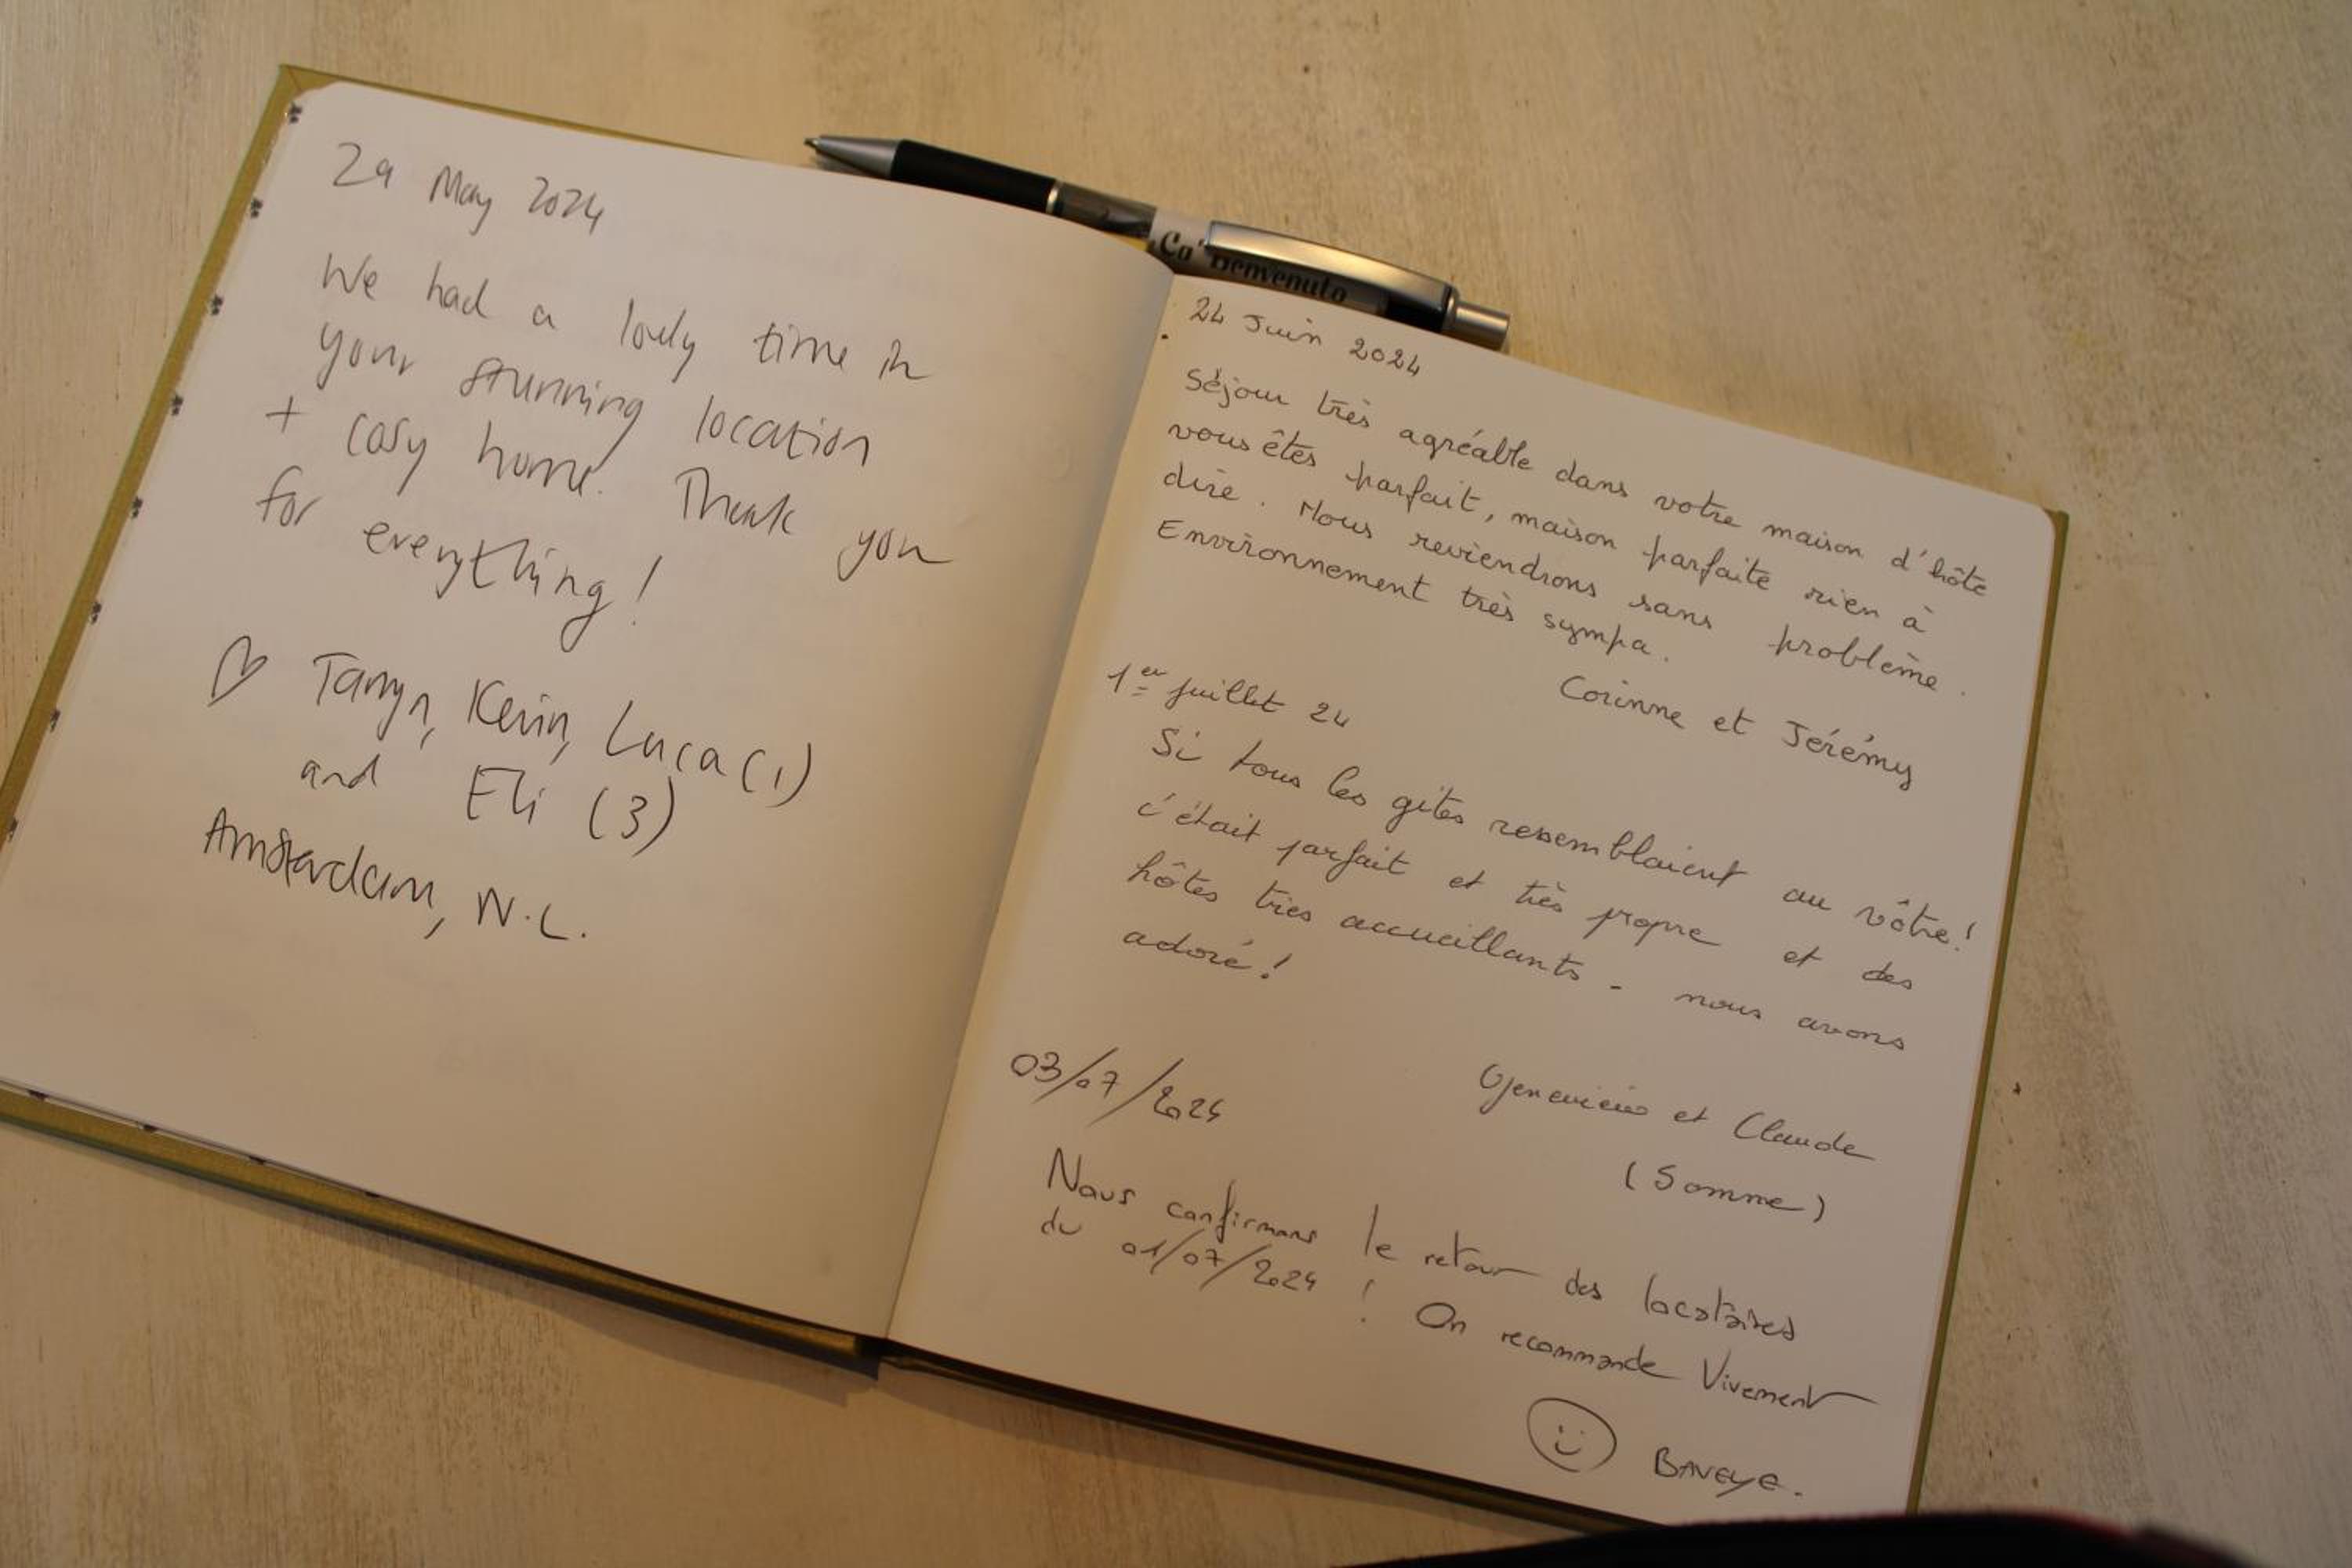 29 May 2024
We had a lovly time in
your stunning location
+ cosy home. Thank you
for everything!
Taryn, Kevin, Luca (1)
and Eli (3)
Amsterdam, N.L.
Ca' Benvenuto
24 Juin 2024
Séjour très agréable dans votre maison d'hôte
vous êtes parfait, maison parfaite rien à
dire. Nous reviendrons sans problème.
Environnement très sympa.
Corinne et Jérémy
1er juillet 24
Si tous les gîtes ressemblaient au vôtre!
c'était parfait et très propre et des
hôtes très accueillants - nous avons
adoré!
Geneviève et Claude
(Somme)
03/07/2024
Nous confirmons le retour des locataires
du 01/07/2024 ! On recommande Vivement
BAVEYE.